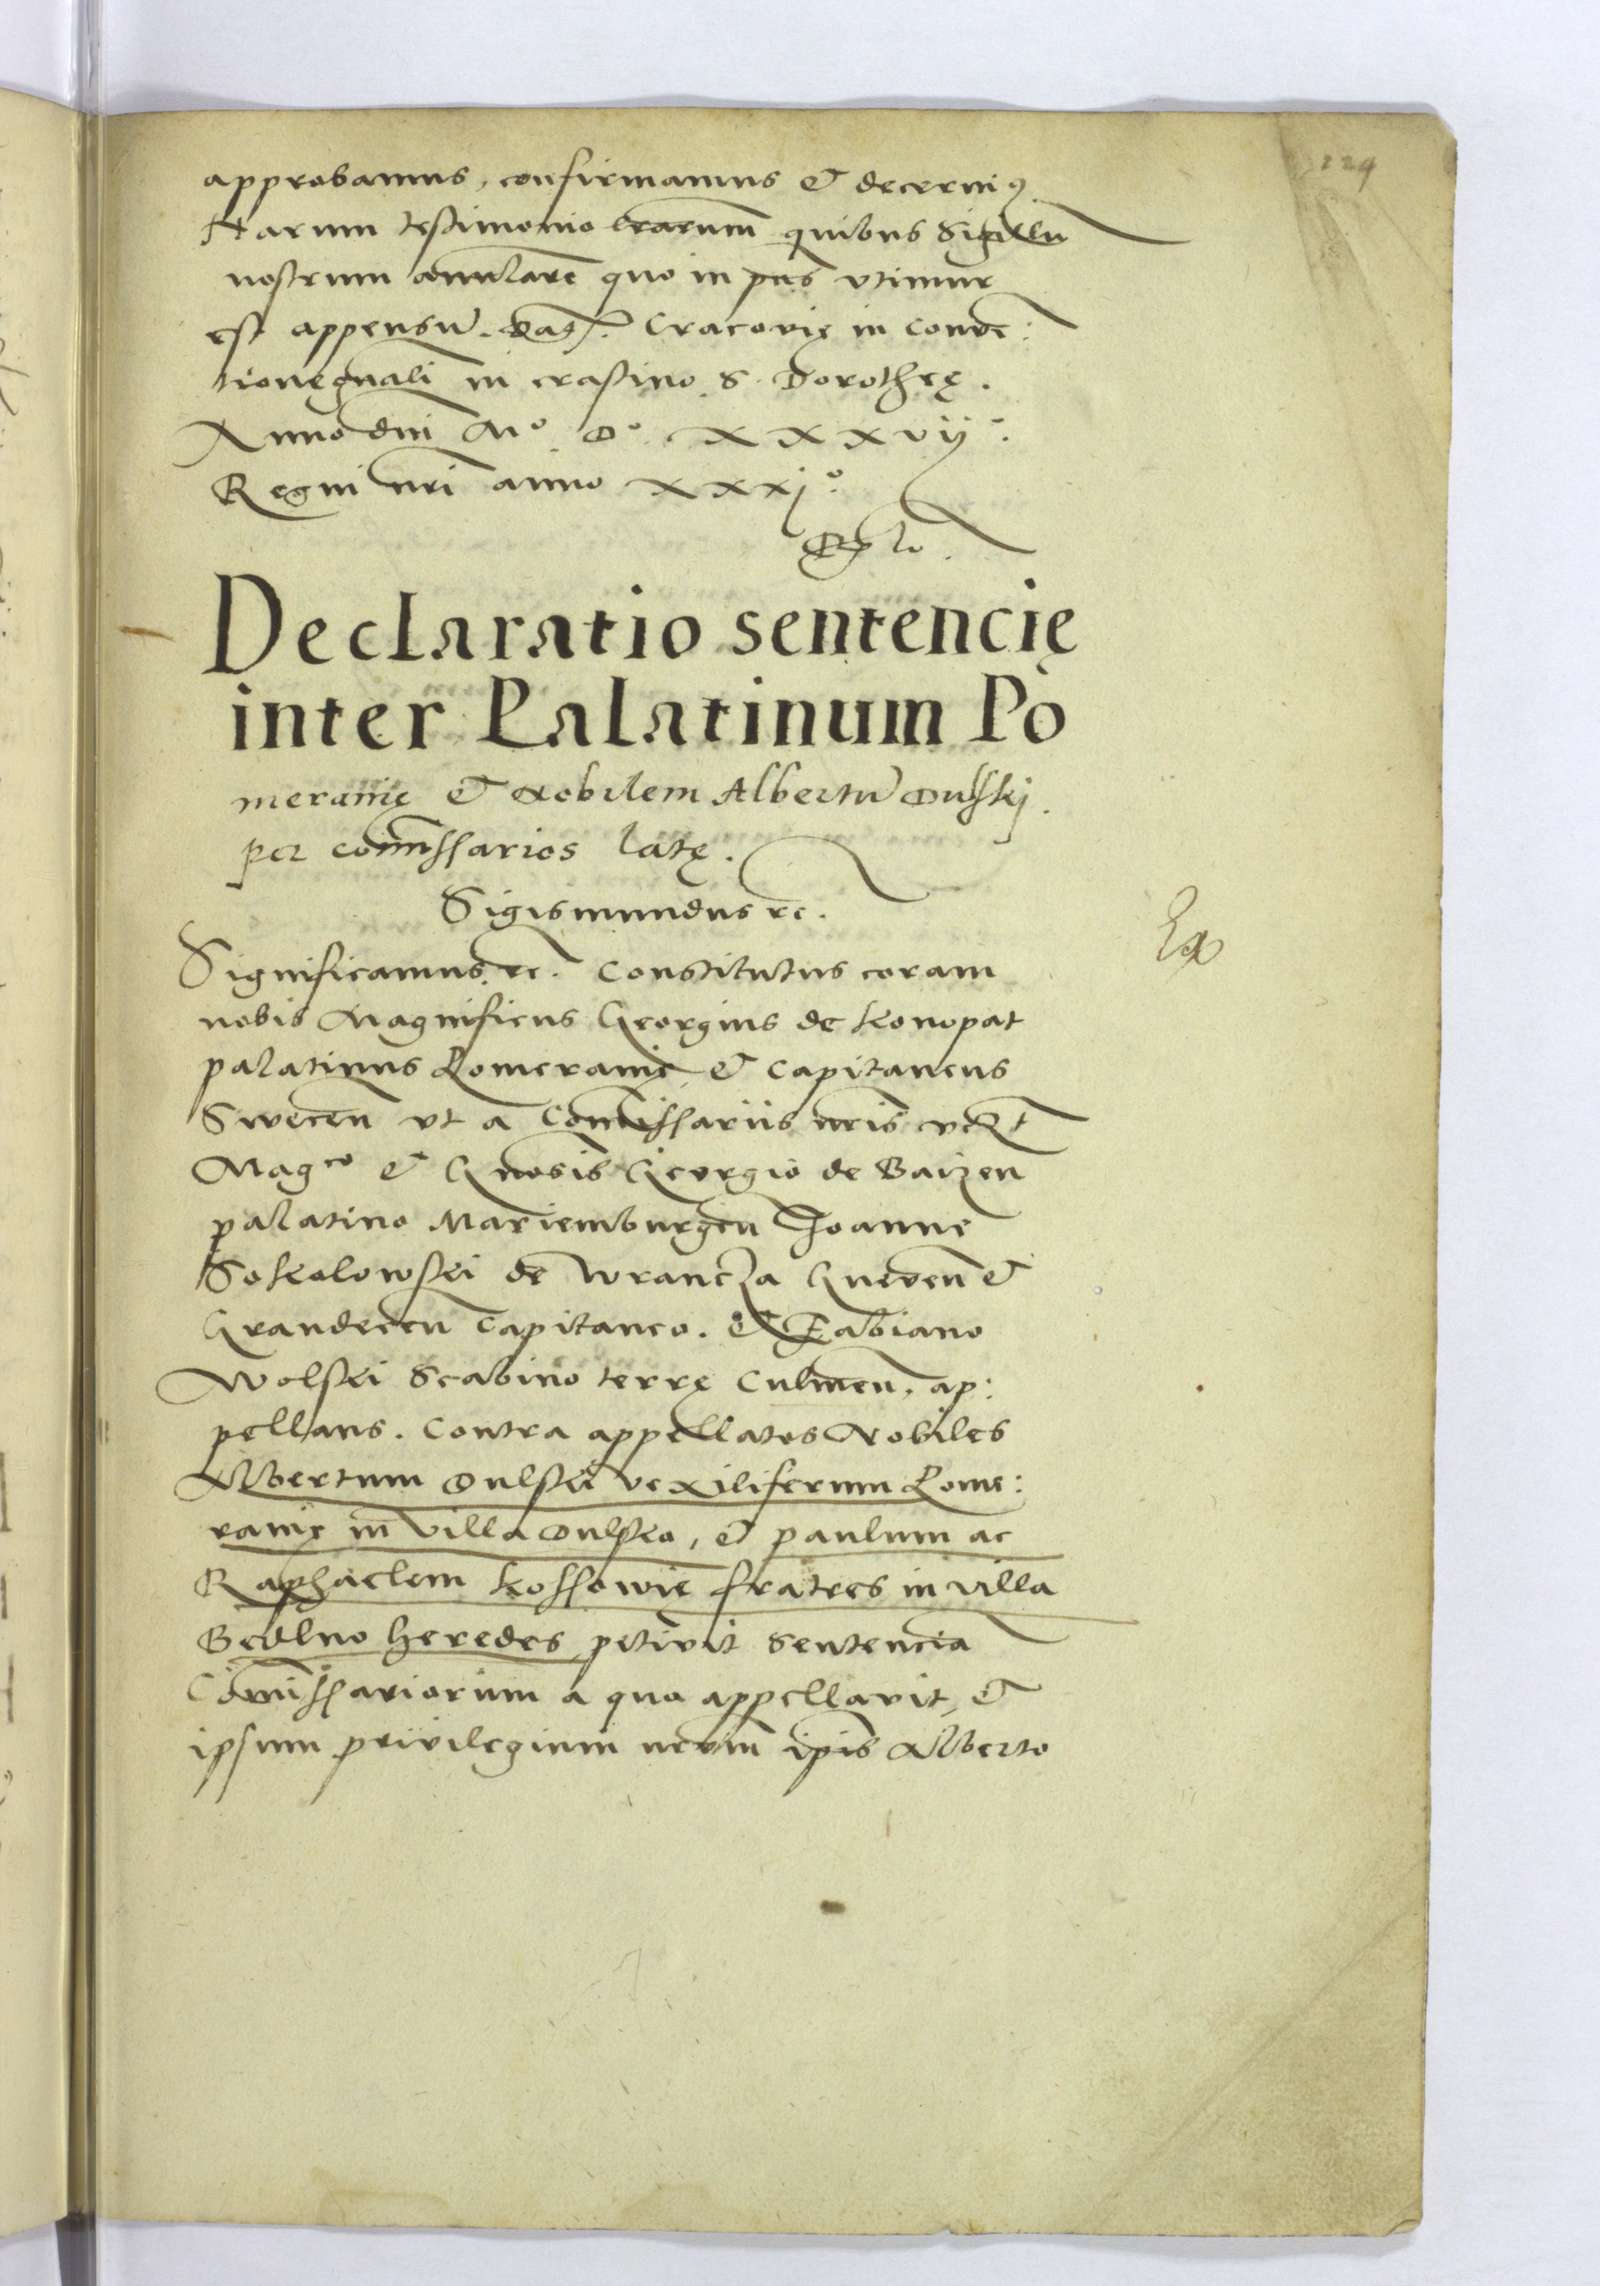 229
approbamus, confirmamus et decernim9
Harum testimonio lrarum quibus Sigillu
nostrum annulare quo in pns vtimur
est appensu. Cracovię in Conve:
tione gnali in crastino S. Dorotheę.
Anno dni Mo. Do. XXXvij°.
Regni nri anno xxxjo.
Declaratio sentencię
inter Palatinum Po
meranię et Nobilem Albertu Dulskj.
per comissarios latę.
Sigismundus rc.
Significamus rc. Constitutus coram
nobis Magnificus Georgius de Konopat
palatinus Pomeranię et Capitaneus
Swecen vt a Comissariis nris
Magco et Gnosis Georgio de Baizen
palatino Mariemburgen Joanne
Sokolowski de Wrancza Gneven et
Graudecen Capitaneo. et Fabiano
Wolski Scabino terrę Culmen, ap:
pellans. Contra appellatos Nobiles
Albertum Dulski vexiliferum Pome:
ranię in villa Dulsko, et paulum ac
Raphaelem Kossowie fratres in villa
Bedlno heredes petivit Sentencia
Comissariorum a qua appellavit, et
ipsum privilegium ipis Alberto